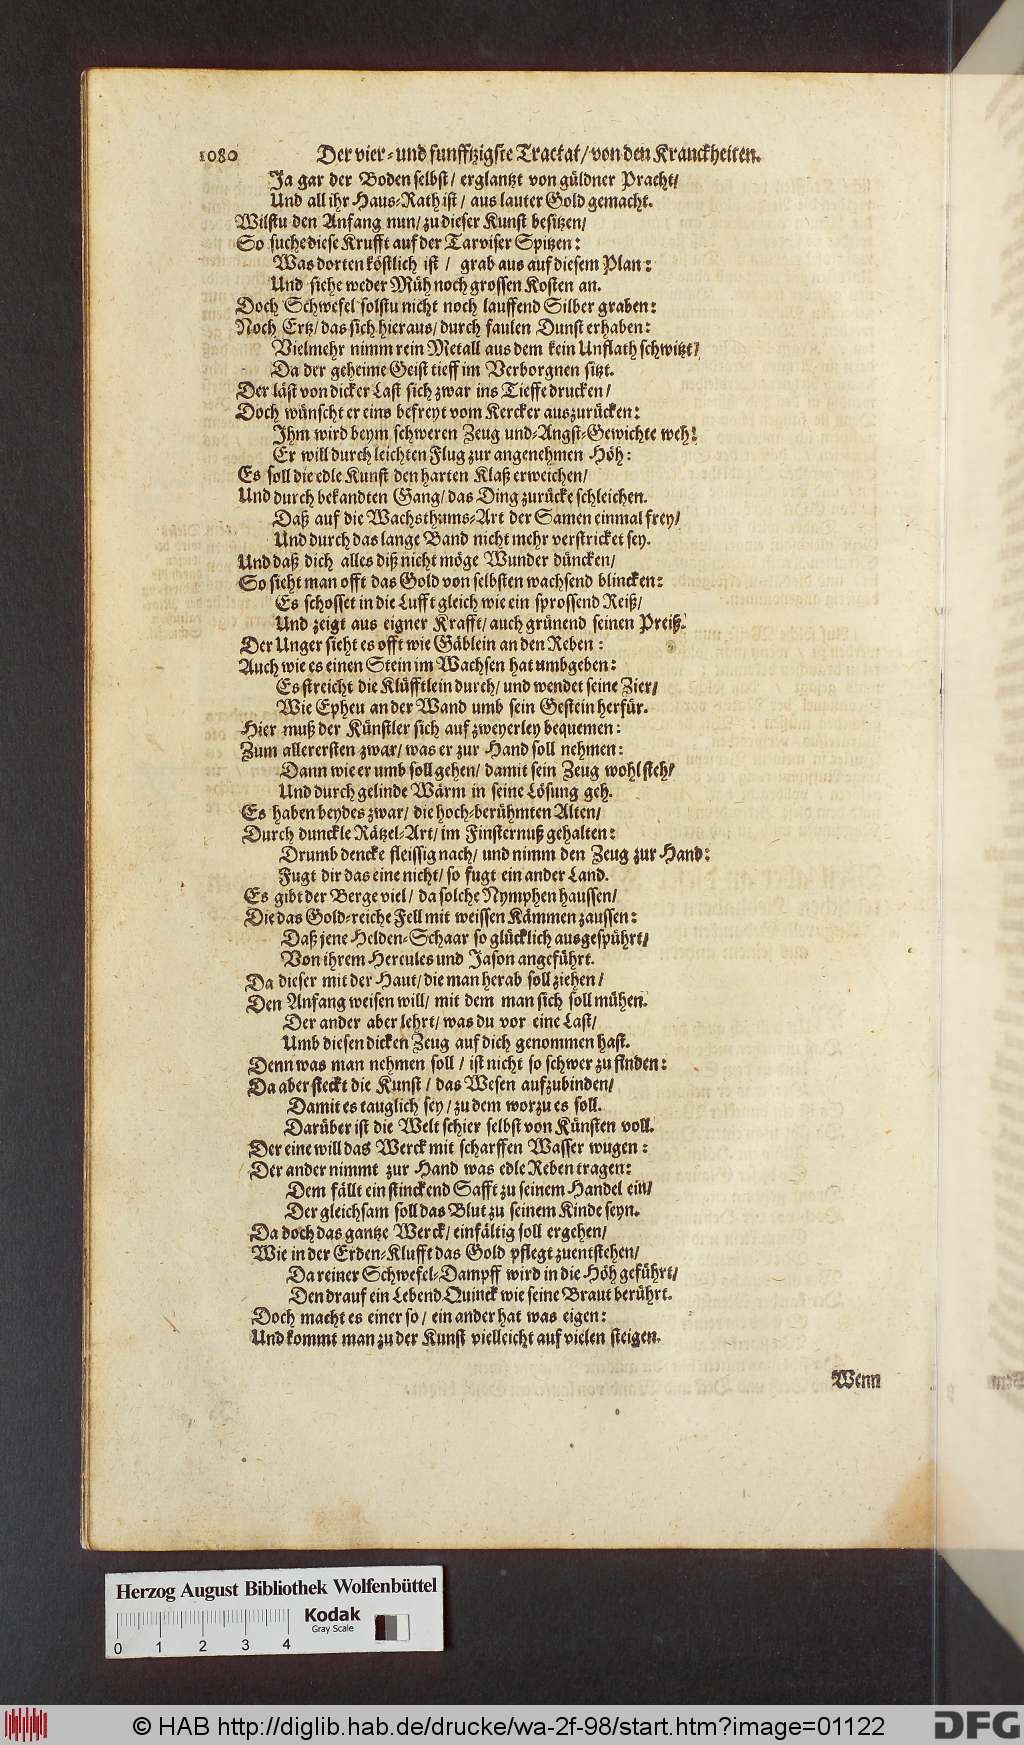 1080 Der vier- und funfftzigste Tractat/ von den Kranckheiten.
Ja gar der Boden selbst/ erglantzt von güldner Pracht/
Und all ihr Haus-Rath ist/ aus lauter Gold gemacht.
Wilstu den Anfang nun/ zu dieser Kunst besitzen/
So suche diese Krufft auf der Tarviser Spitzen:
Was dorten köstlich ist/ grab aus auf diesem Plan:
Und siehe weder Müh noch grossen Kosten an.
Doch Schwefel solstu nicht noch lauffend Silber graben:
Noch Ertz/ das sich hieraus/ durch faulen Dunst erhaben:
Vielmehr nimm rein Metall aus dem kein Unflath schwitzt/
Da der geheime Geist tieff im Verborgnen sitzt.
Der läst von dicker Last sich zwar ins Tieffe drucken/
Doch wünscht er eins befreyt vom Kercker auszurücken:
Ihm wird beym schweren Zeug und-Angst-Gewichte weh!
Er will durch leichten Flug zur angenehmen Höh:
Es soll die edle Kunst den harten Klaß erweichen/
Und durch bekandten Gang/ das Ding zurücke schleichen.
Daß auf die Wachsthums-Art der Samen einmal frey/
Und durch das lange Band nicht mehr verstricket sey.
Und daß dich alles diß nicht möge Wunder düncken/
So sieht man offt das Gold von selbsten wachsend blincken:
Es schosset in die Lufft gleich wie ein sprossend Reiß/
Und zeigt aus eigner Krafft/ auch grünend seinen Preiß.
Der Unger sieht es offt wie Gäblein an den Reben:
Auch wie es einen Stein im Wachsen hat umbgeben:
Es streicht die Klüfftlein durch/ und wendet seine Zier/
Wie Epheu an der Wand umb sein Gestein herfür.
Hier muß der Künstler sich auf zweyerley bequemen:
Zum allerersten zwar/ was er zur Hand soll nehmen:
Dann wie er umb soll gehen/ damit sein Zeug wohl steh/
Und durch gelinde Wärm in seine Lösung geh.
Es haben beydes zwar/ die hoch-berühmten Alten/
Durch dunckle Rätzel-Art/ im Finsternuß gehalten:
Drumb dencke fleissig nach/ und nimm den Zeug zur Hand:
Fugt dir das eine nicht/ so fugt ein ander Land.
Es gibt der Berge viel/ da solche Nymphen haussen/
Die das Gold-reiche Fell mit weissen Kämmen zaussen:
Daß jene Helden-Schaar so glücklich ausgespührt/
Von ihrem Hercules und Jason angeführt.
Da dieser mit der Haut/ die man herab soll ziehen/
Den Anfang weisen will/ mit dem man sich soll mühen.
Der ander aber lehrt/ was du vor eine Last/
Umb diesen dicken Zeug auf dich genommen hast.
Denn was man nehmen soll/ ist nicht so schwer zu finden:
Da aber steckt die Kunst/ das Wesen aufzubinden/
Damit es tauglich sey/ zu dem worzu es soll.
Darüber ist die Welt schier selbst von Künsten voll.
Der eine will das Werck mit scharffen Wasser wugen:
Der ander nimmt zur Hand was edle Reben tragen:
Dem fällt ein stinckend Safft zu seinem Handel ein/
Der gleichsam soll das Blut zu seinem Kinde seyn.
Da doch das gantze Werck/ einfältig soll ergehen/
Wie in der Erden-Klufft das Gold pflegt zuentstehen/
Da reiner Schwefel-Dampff wird in die Höh geführt/
Den drauf ein Lebend Quinck wie seine Braut berührt.
Doch macht es einer so/ ein ander hat was eigen:
Und kommt man zu der Kunst vielleicht auf vielen steigen.
Wenn
Herzog August Bibliothek Wolfenbüttel
0 1 2 3 4
Kodak
Gray Scale
© HAB http://diglib.hab.de/drucke/wa-2f-98/start.htm?image=01122
DFG